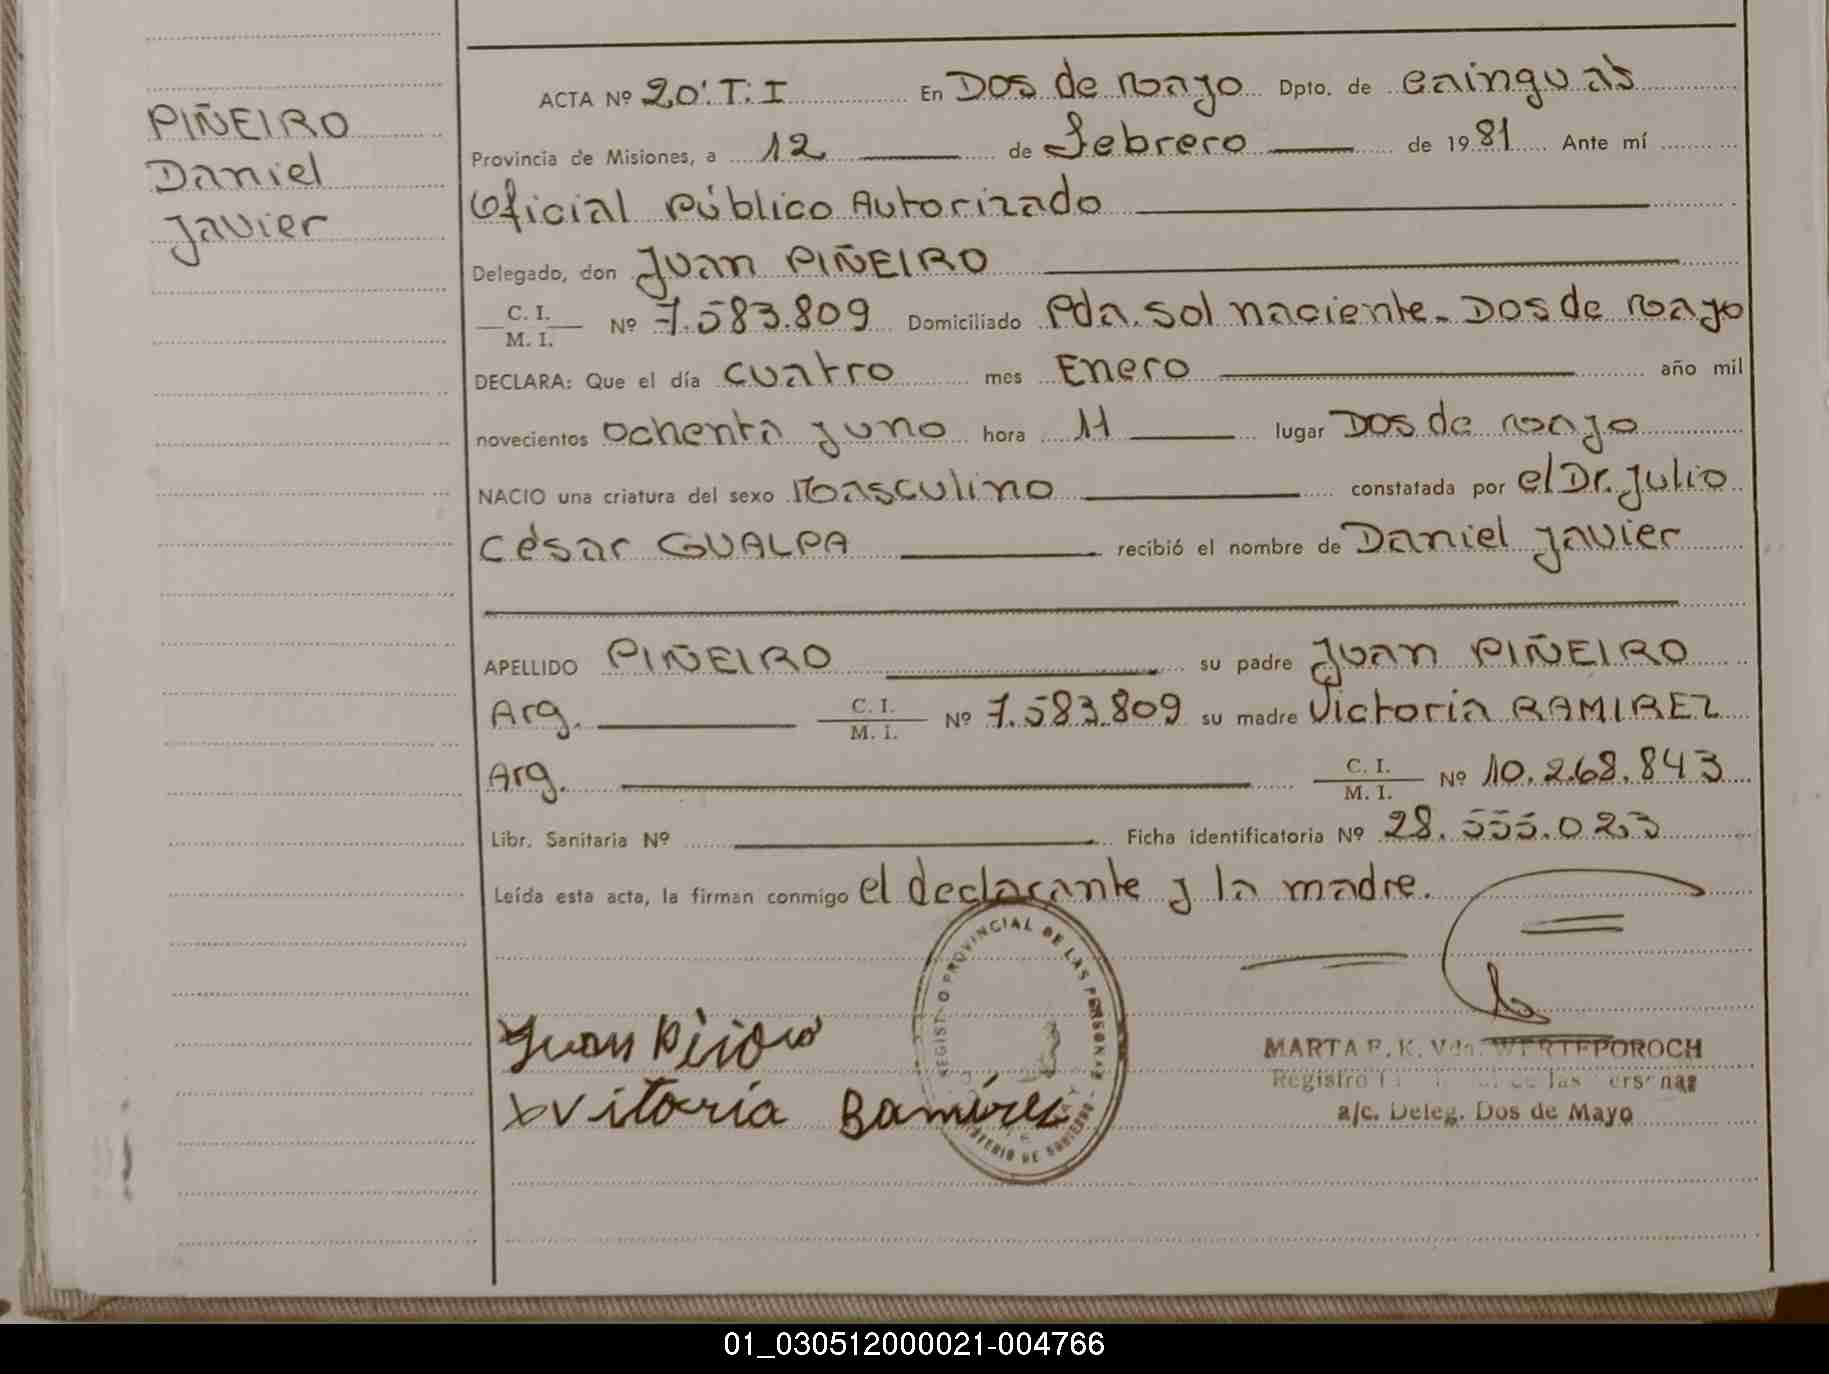 PIÑEIRO
Daniel
Javier
ACTA Nº 20'.T.I En Dos de Mayo Dpto. de Cainguás
Provincia de Misiones, a 12 de Febrero de 1981 Ante mí
Oficial Público Autorizado
Delegado, don Juan PIÑEIRO
C. I. / M. I. Nº 7.583.809 Domiciliado Pda. Sol naciente. Dos de Mayo
DECLARA: Que el día cuatro mes Enero año mil
novecientos ochenta y uno hora 11 lugar Dos de Mayo
NACIO una criatura del sexo Masculino constatada por el Dr. Julio
César GUALPA recibió el nombre de Daniel Javier
APELLIDO PIÑEIRO su padre Juan PIÑEIRO
Arg. C. I. / M. I. Nº 7.583.809 su madre Victoria RAMIREZ
Arg. C. I. / M. I. Nº 10.268.843
Libr. Sanitaria Nº Ficha identificatoria Nº 28.555.023
Leída esta acta, la firman conmigo el declarante y la madre.
REGISTRO PROVINCIAL DE LAS PERSONAS
MINISTERIO DE GOBIERNO
Juan
Vitoria Ramirez
MARTA E. K. Vda. WERTEPOROCH
Registro de las Personas
a/c. Deleg. Dos de Mayo
01_030512000021-004766